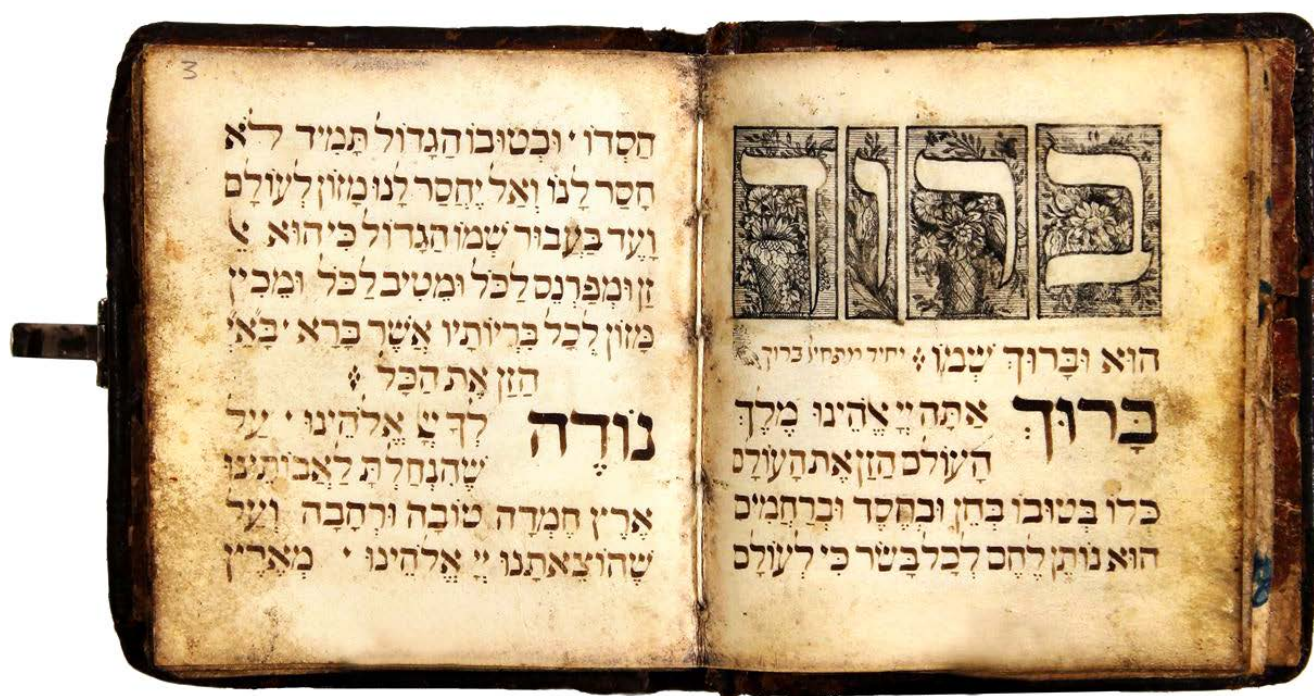 ברוך
הוא וּבָּרוּךְ שְׁמוֹ יחיד מתחיל ברוך
בָּרוּךְ אַתָּה יְיָ אֱהֵינוּ מֶלֶךְ
הָעוֹלם הַזָן אֶת הָעוֹלָם
כֻּלוֹ בְּטוּבוֹ בְּחֵן וּבְחֶסֶד וּבְרַחֲמִים
הוּא נוֹתֵן לֶחֶם לְכָל בָּשָׂר כִּי לְעוֹלָם
3
חַסְדוֹ י וּבְטוּבוֹ הַגָדוֹל תָּמִיד לֹא
חָסַר לָנוּ וְאַל יֶחְסַר לָנוּ מָזוֹן לְעוֹלָם
וָעֶד בַּעֲבוּר שְׁמוֹ הַגָדוֹל כִּי הוּא א
זָן וּמְפַרְנֵס לַכֹּל וּמֵטִיב לַכֹּל וּמֵכִין
מָזוֹן לְכָל בְּרִיוֹתָיו אֲשֶׁר בָּרָא י בָּאַיְ
הַזָן אֶת הַכֹּל
נוֹדֶה לְךָ יְיָ אֱלֹהֵינוּ י עַל
שֶׁהִנְחַלְתָּ לַאֲבוֹתֵינוּ
אֶרֶץ חֶמְדָה טוֹבָה וּרְחָבָה וְעַל
שֶׁהוֹצֵאתָנוּ יְיָ אֱלֹהֵינוּ י מֵאֶרֶץ